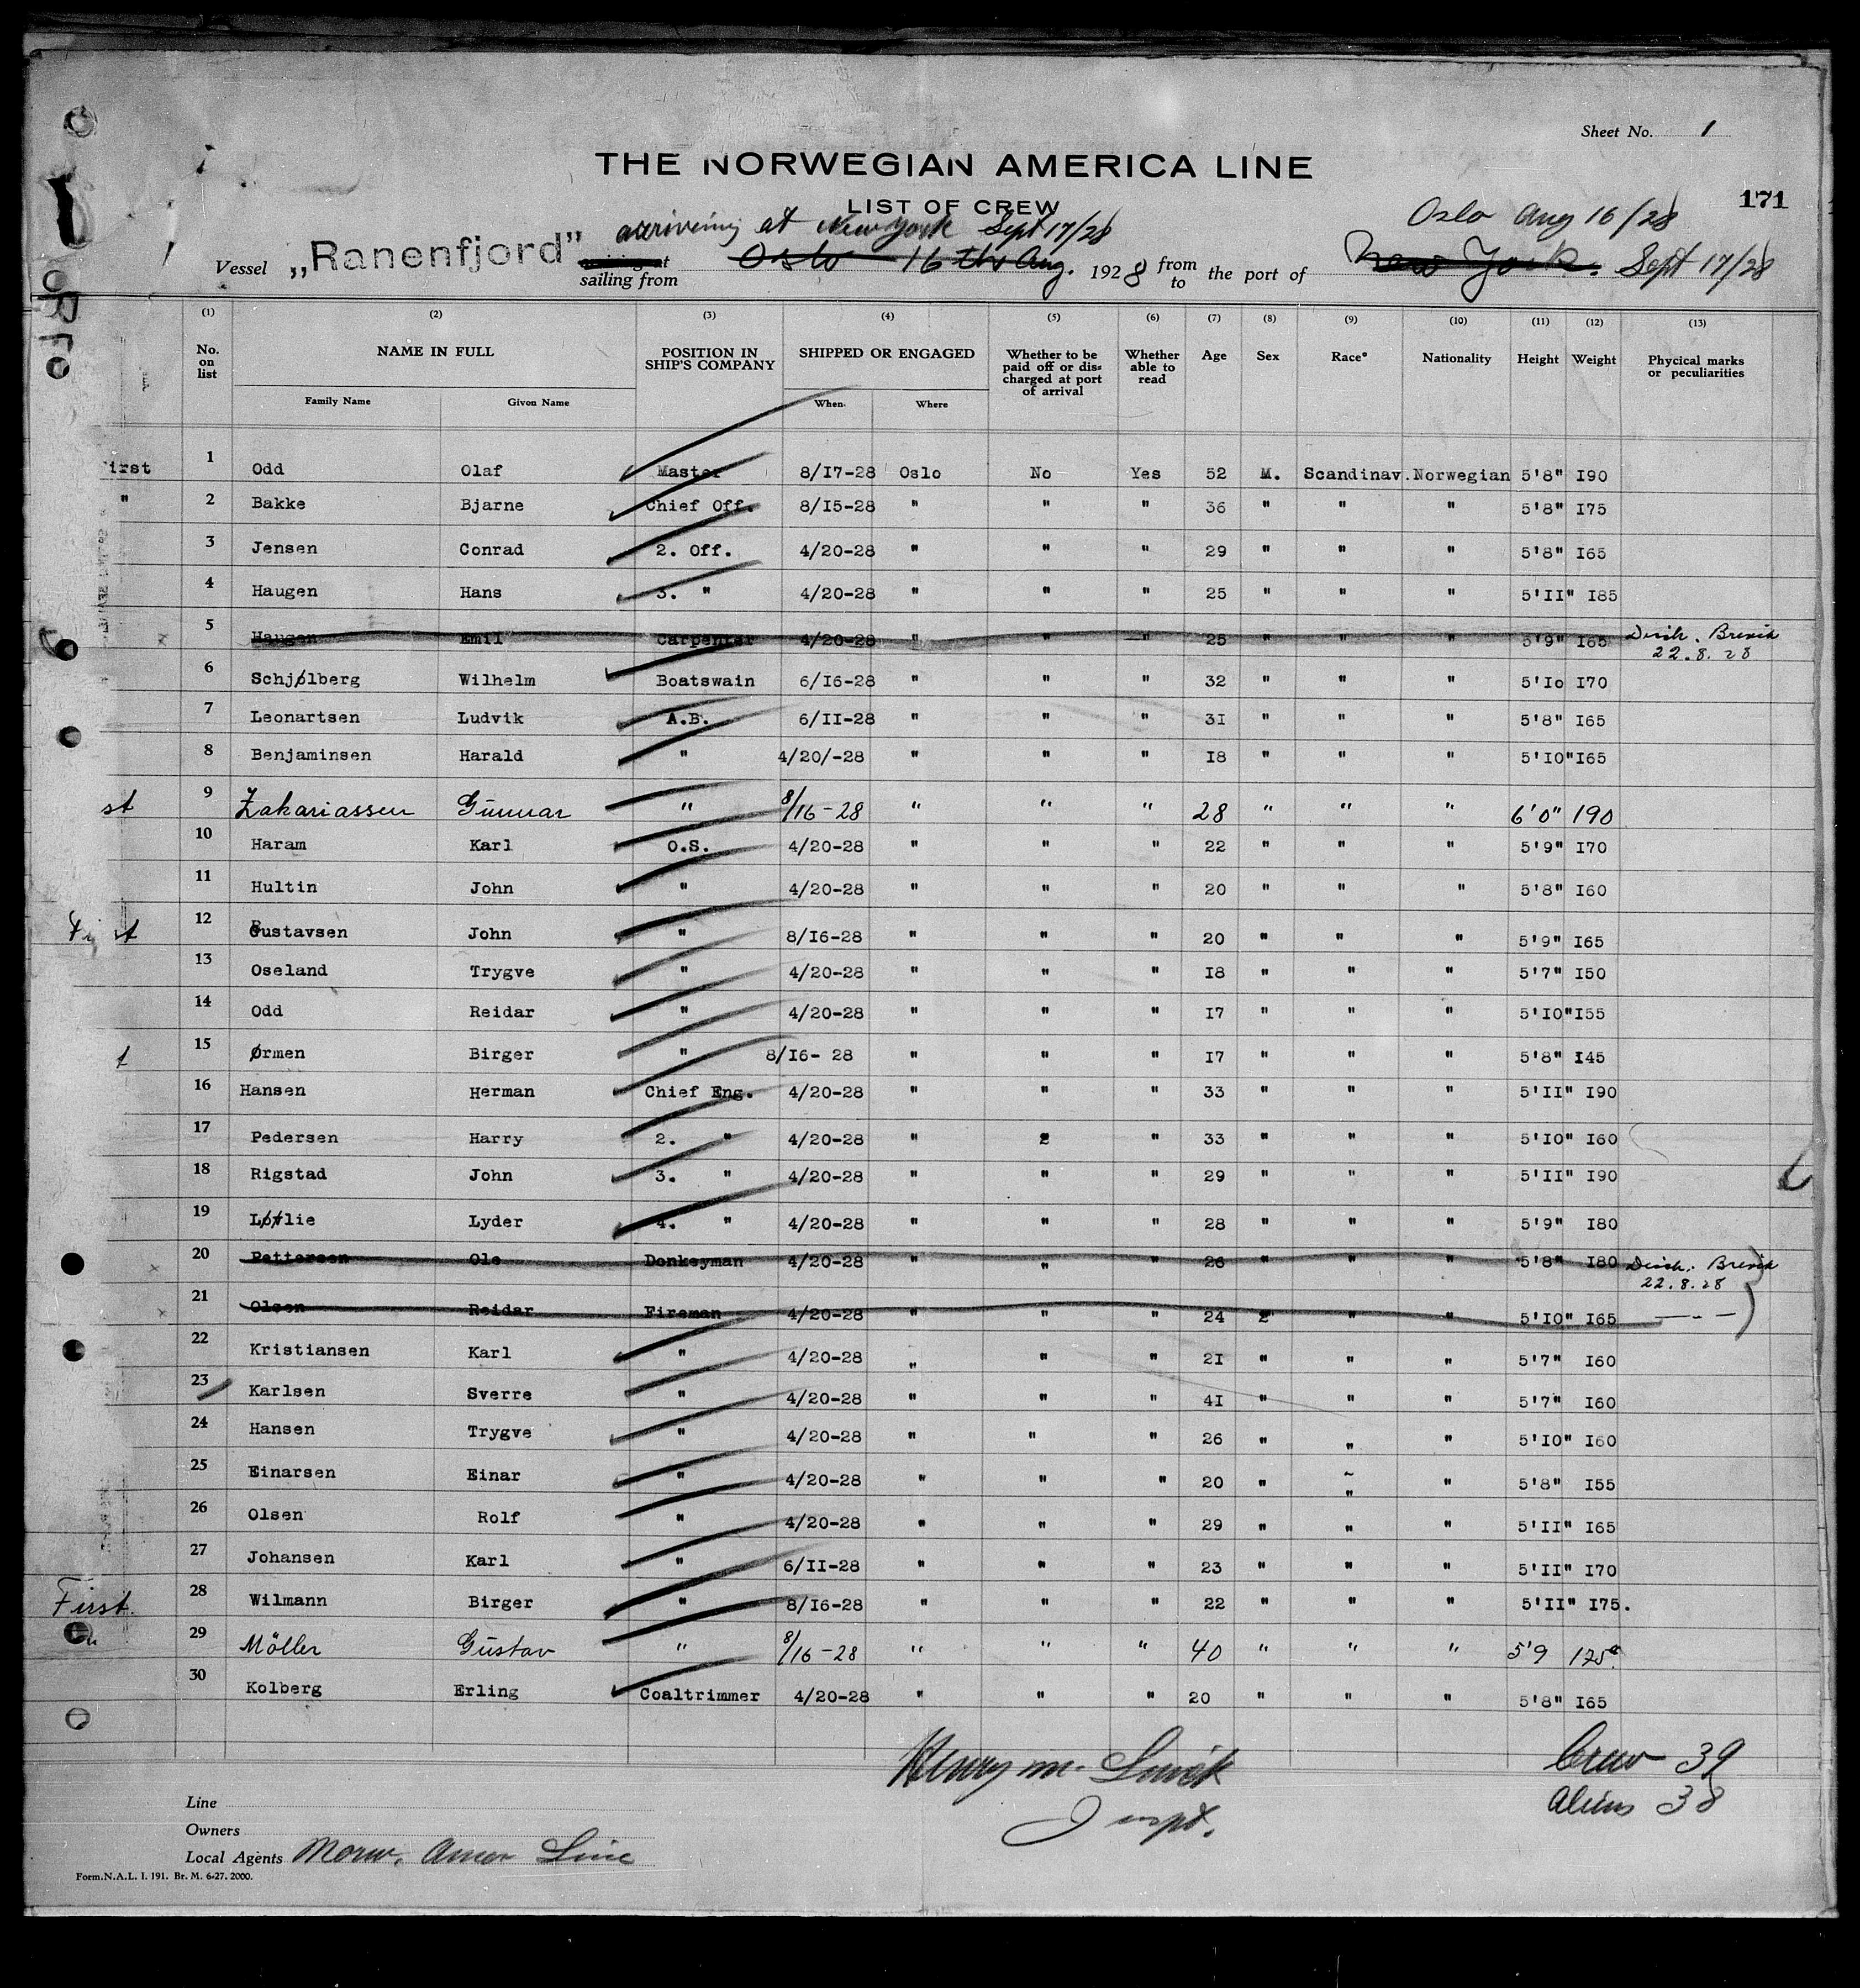 Sheet No. 1
THE NORWEGIAN AMERICA LINE
171
LIST OF CREW
arriveing at New York Sept 17/28
Oslo Aug 16/28
Vessel „Ranenfjord” sailing from Oslo 16th Aug. 1928 from to the port of New York. Sept 17/28
(1) (2) (3) (4) (5) (6) (7) (8) (9) (10) (11) (12) (13)
No. on list NAME IN FULL POSITION IN SHIP'S COMPANY SHIPPED OR ENGAGED Whether to be paid off or discharged at port of arrival Whether able to read Age Sex Race* Nationality Height Weight Phycical marks or peculiarities
Family Name Givon Name When Where
irst 1 Odd Olaf Master 8/I7-28 Oslo No Yes 52 M. Scandinav. Norwegian 5'8" I90
" 2 Bakke Bjarne Chief Off. 8/I5-28 " " " 36 " " " 5'8" I75
3 Jensen Conrad 2. Off. 4/20-28 " " " 29 " " " 5'8" I65
4 Haugen Hans 3. " 4/20-28 " " " 25 " " " 5'II" I85
5 Haugen Emil Carpenter 4/20-28 " " " 25 " " " 5'9" I65 Disch. Brevik
22.8.28
6 Schjølberg Wilhelm Boatswain 6/I6-28 " " " 32 " " " 5'Io I70
7 Leonartsen Ludvik A.B. 6/II-28 " " " 3I " " " 5'8" I65
8 Benjaminsen Harald " 4/20/-28 " " " I8 " " " 5'IO" I65
st 9 Zakariassen Gunnar " 8/16-28 " " " 28 " " " 6'0" 190
10 Haram Karl O.S. 4/20-28 " " " 22 " " " 5'9" I70
11 Hultin John " 4/20-28 " " " 20 " " " 5'8" I60
12 Gustavsen John " 8/I6-28 " " " 20 " " " 5'9" I65
13 Oseland Trygve " 4/20-28 " " " I8 " " " 5'7" I50
14 Odd Reidar " 4/20-28 " " " I7 " " " 5'IO" I55
t 15 Ørmen Birger " 8/I6- 28 " " " I7 " " " 5'8" I45
16 Hansen Herman Chief Eng. 4/20-28 " " " 33 " " " 5'II" I90
17 Pedersen Harry 2. " 4/20-28 " 2 " 33 " " " 5'IO" I60
18 Rigstad John 3. " 4/20-28 " " " 29 " " " 5'II" I90
19 Løtlie Lyder 4. " 4/20-28 " " " 28 " " " 5'9" I80
20 Pettersen Ole Donkeyman 4/20-28 " " 26 " " " 5'8" I80 Disch. Brevik
22.8.28
21 Olsen Reidar Fireman 4/20-28 " " " 24 2 " " 5'IO" I65 — - —
22 Kristiansen Karl " 4/20-28 " " " 2I " " " 5'7" I60
23 Karlsen Sverre " 4/20-28 " " " 4I " " " 5'7" I60
24 Hansen Trygve " 4/20-28 " " " 26 " " " 5'IO" I60
25 Einarsen Einar " 4/20-28 " " " 20 " " " 5'8" I55
26 Olsen Rolf " 4/20-28 " " " 29 " " " 5'II" I65
27 Johansen Karl " 6/II-28 " " " 23 " " " 5'II" I70
First 28 Wilmann Birger " 8/I6-28 " " " 22 " " " 5'II" I75.
29 Möller Gustav " 8/16-28 " " " 40 " " " 5'9 175
30 Kolberg Erling Coaltrimmer 4/20-28 " " " 20 " " " 5'8" I65
Henry M.
Inspt.
Crew 39
Aliens 38
Line
Owners
Local Agents Norw. Amer Line
Form.N.A.L. I. 191. Br. M. 6-27. 2000.